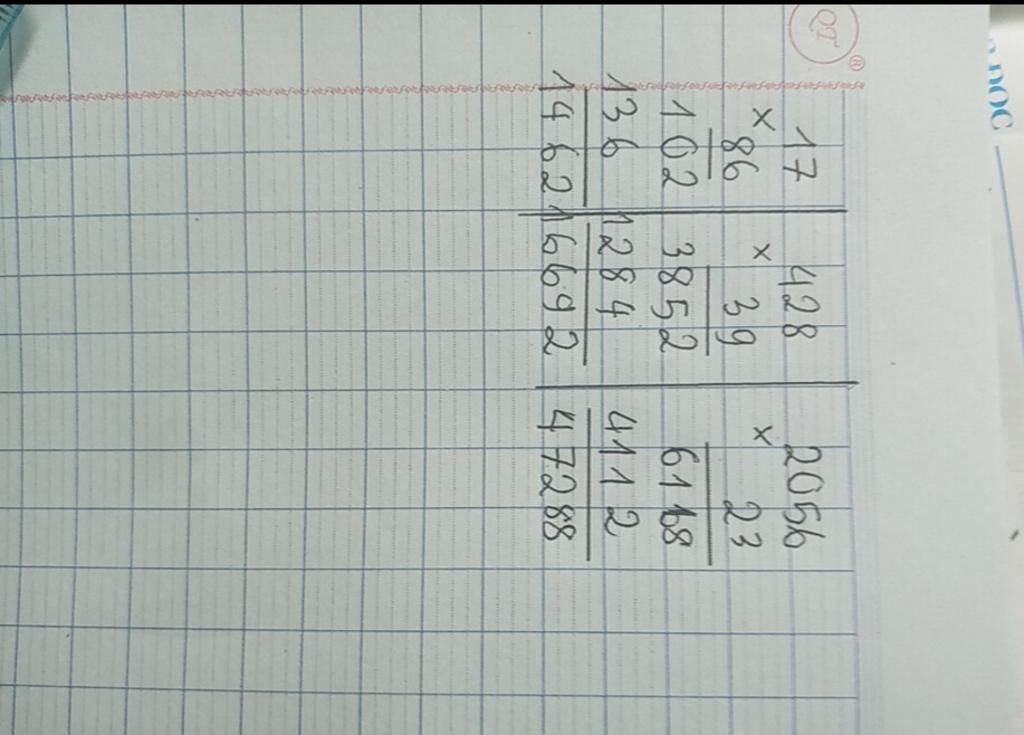 QT
®
17
× 86
102
136
1462
428
× 39
3852
1284
16692
2056
× 23
6118
4112
47288
DOC